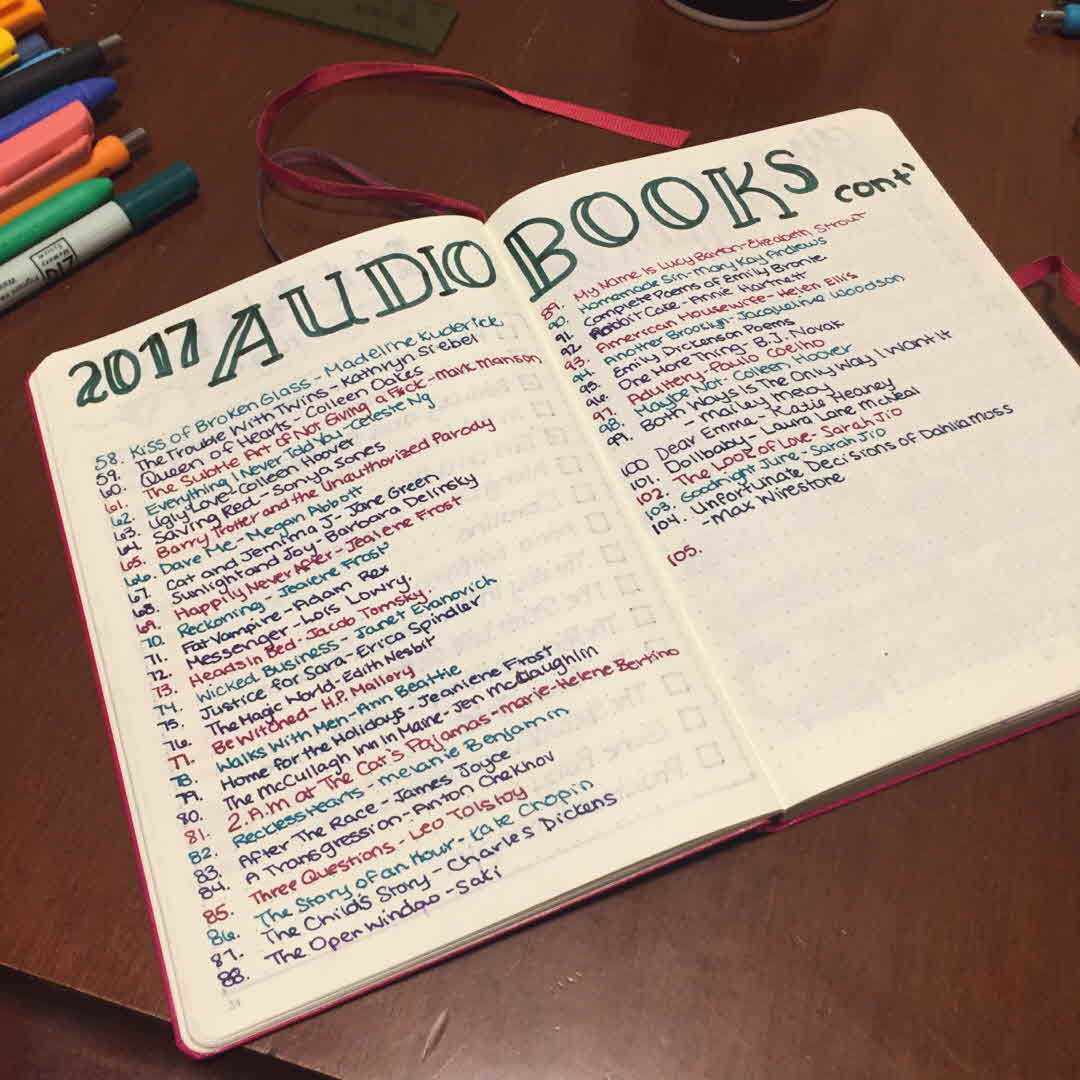 2017 AUDIO BOOKS cont'
58. Kiss of Broken Glass - Madeline Kuderick
59. The Trouble With Twins - Kathryn Siebel
60. Queen of Hearts - Colleen Oakes
61. The Subtle Art of Not Giving a F*ck - Mark Manson
62. Everything I Never Told You - Celeste Ng
63. Ugly Love - Colleen Hoover
64. Saving Red - Sonya Sones
65. Barry Trotter and the Unauthorized Parody
66. Dare Me - Megan Abbott
67. Cat and Jemima J - Jane Green
68. Sunlight and Joy - Barbara Delinsky
69. Happily Never After - Jeaiene Frost
70. Reckoning - Jeaiene Frost
71. Fat Vampire - Adam Rex
72. Messenger - Lois Lowry.
73. Heads in Bed - Jacob Tomsky
74. Wicked Business - Janet Evanovich
75. Justice for Sara - Erica Spindler
76. The Magic World - Edith Nesbit
77. Be Witched - H.P. Mallory
78. Walks With Men - Ann Beattie
79. Home for the Holidays - Jeaniene Frost
80. The McCullagh Inn in Maine - Jen McLaughlin
81. 2 A.M at The Cat's Pajamas - Marie-Helene Bertino
82. Reckless Hearts - Melanie Benjamin
83. After The Race - James Joyce
84. A Transgression - Anton Chekhov
85. Three Questions - Leo Tolstoy
86. The Story of an Hour - Kate Chopin
87. The Child's Story - Charles Dickens
88. The Open Window - Saki
89. My Name Is Lucy Barton - Elizabeth Strout
90. Homemade Sin - Mary Kay Andrews
91. Complete Poems of Emily Bronte
92. Rabbit Cake - Annie Hartnett
93. American Housewife - Helen Ellis
94. Another Brooklyn - Jacqueline Woodson
95. Emily Dickenson Poems
96. One More Thing - B.J. Novak
97. Adultery - Paulo Coelho
98. Maybe Not - Colleen Hoover
99. Both Ways Is The Only Way I Want it
- Mailey Meloy
100 Dear Emma - Katie Heaney
101. Dollbaby - Laura Lane McNeal
102. The Look of Love - Sarah Jio
103. Goodnight June - Sarah Jio
104. Unfortunate Decisions of Dahlia Moss
- Max Wirestone
105.